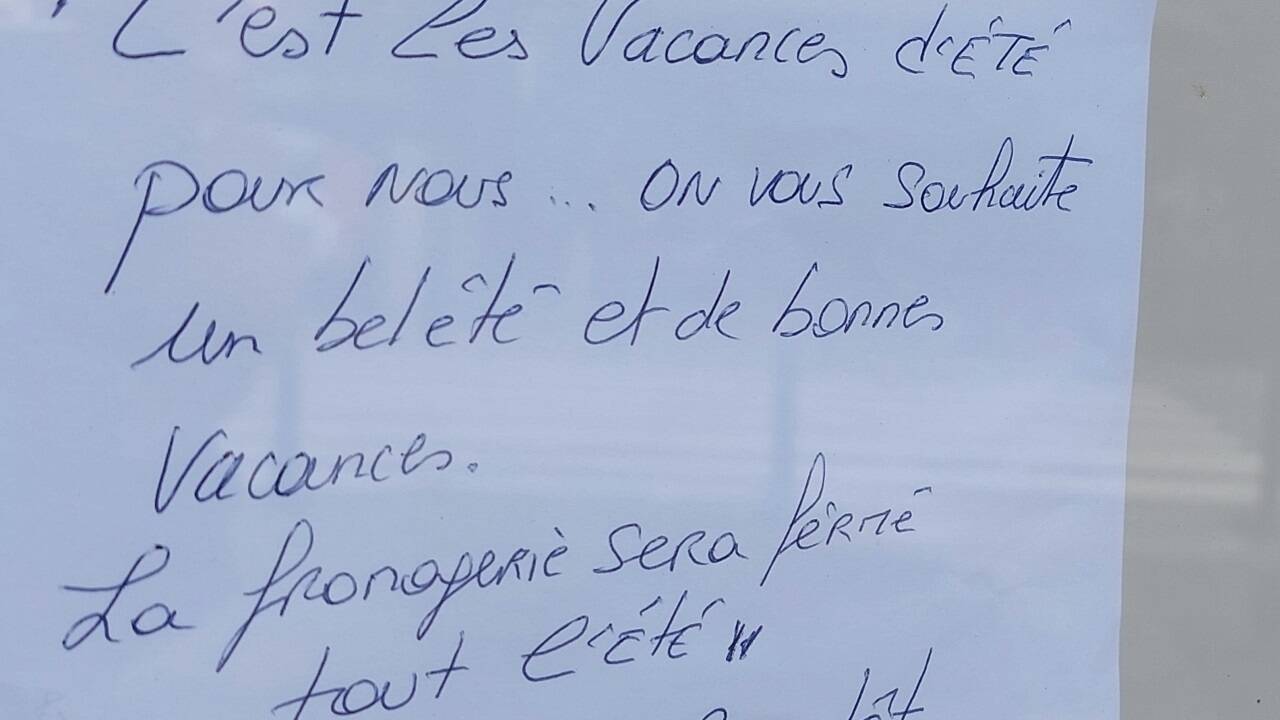 C'est les vacances d'été
pour nous... on vous souhaite
un bel été et de bonnes
vacances.
La fromagerie sera fermé
tout l'été"